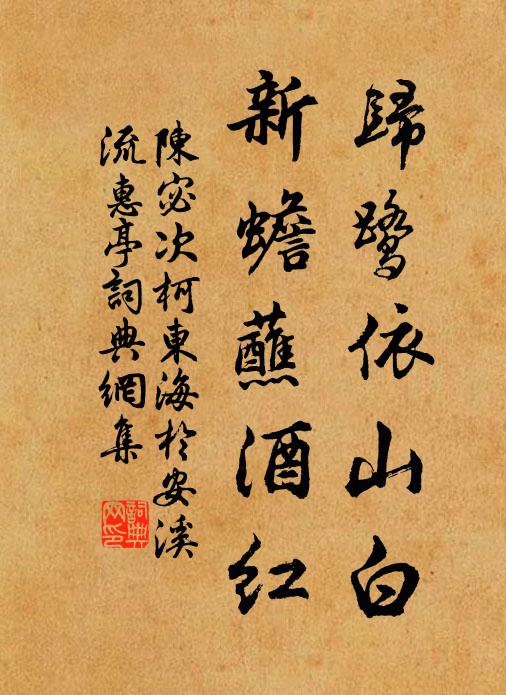 歸鷺依山白
新蟾蘸酒紅
陳宓次柯東海於安溪
流惠亭詞典網集
詞典网印